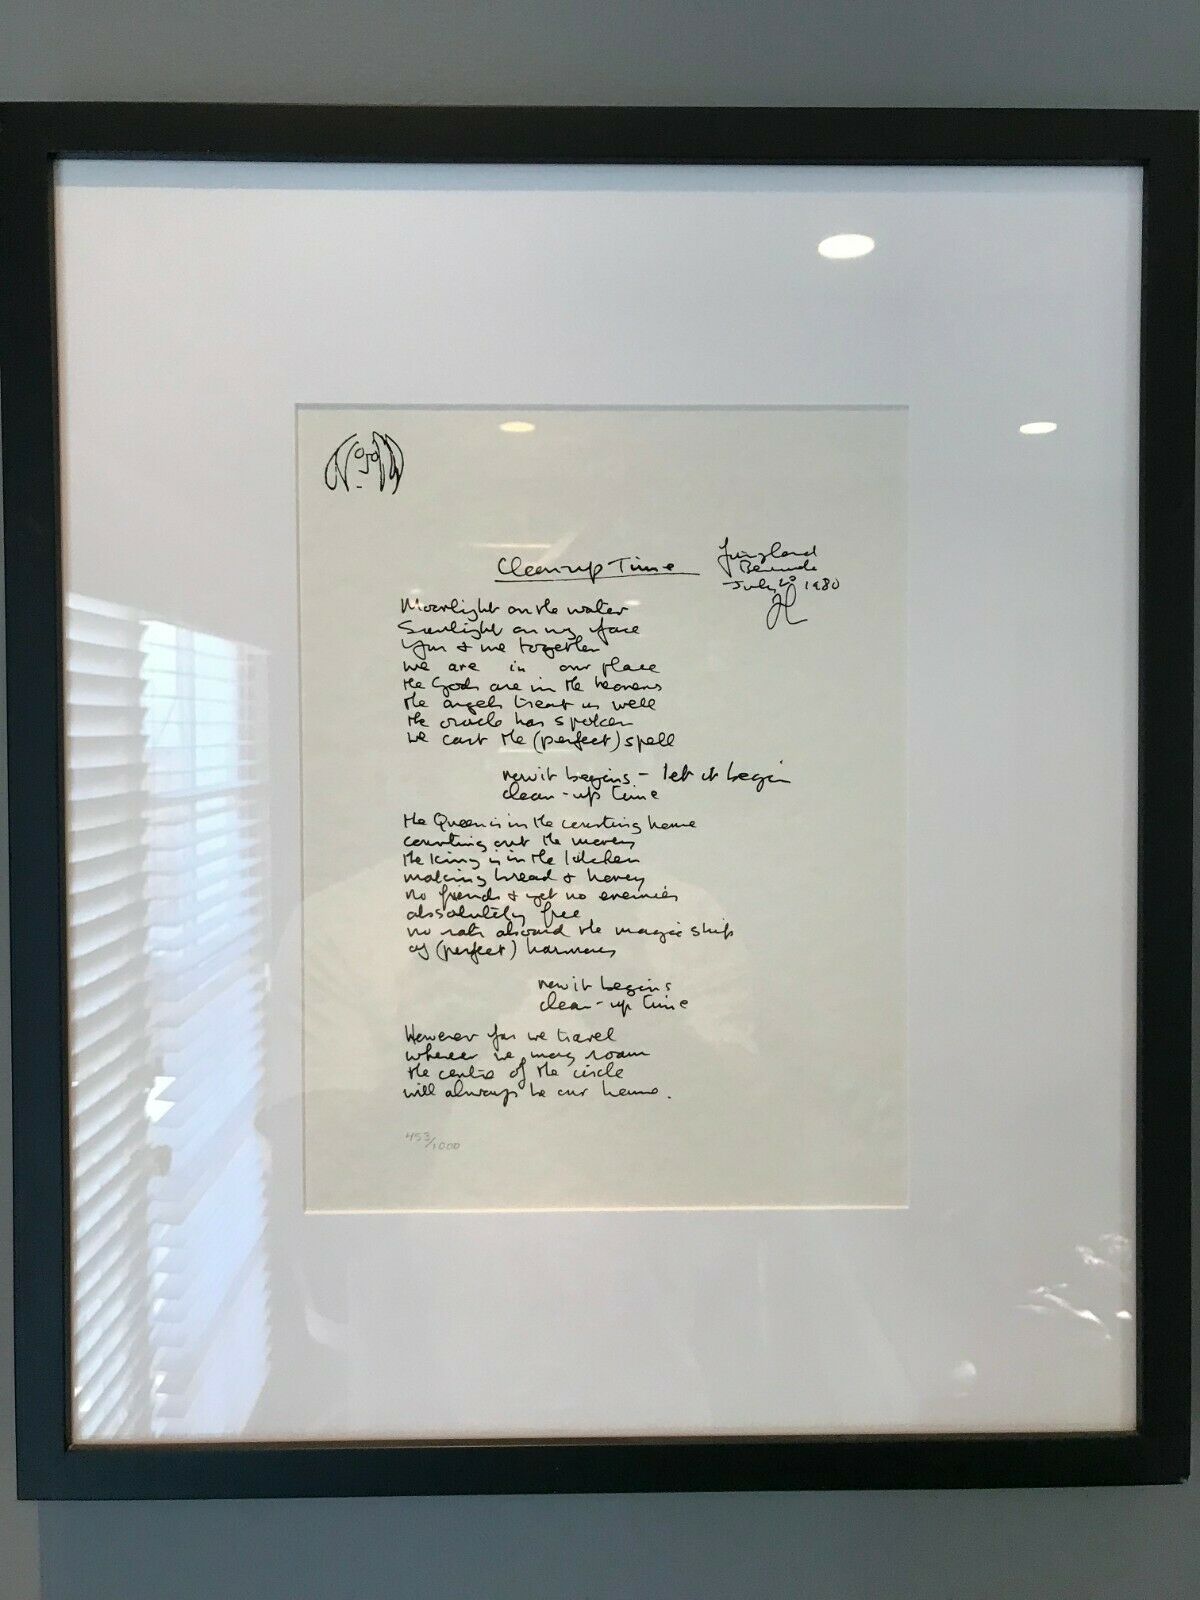 Clean-up Time
Bermuda
July 20 1980
JL
Moonlight on the water
Sunlight on my face
You & me together
we are in our place
the Gods are in the heavens
the angels treat us well
the oracle has spoken
we cast the (perfect) spell
now it begins - let it begin
clean-up time
the Queen is in the counting house
counting out the money
the king is in the kitchen
making bread & honey
no friends & yet no enemies
absolutely free
no rats aboard the magic ship
of (perfect) harmony
now it begins
clean-up time
However far we travel
wherever we may roam
the centre of the circle
will always be our home.
453/1000